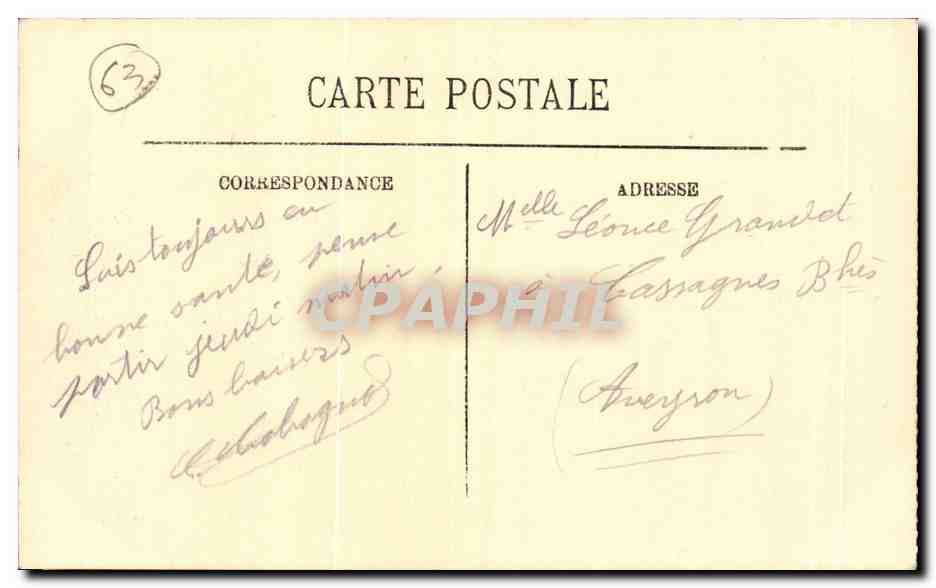 63
CARTE POSTALE
CORRESPONDANCE
Suis toujours en
bonne santé, pense
partir jeudi matin.
Bons baisers
ADRESSE
Melle Léonce Grandet
à Cassagnes Bhès
(Aveyron)
CPAPHIL